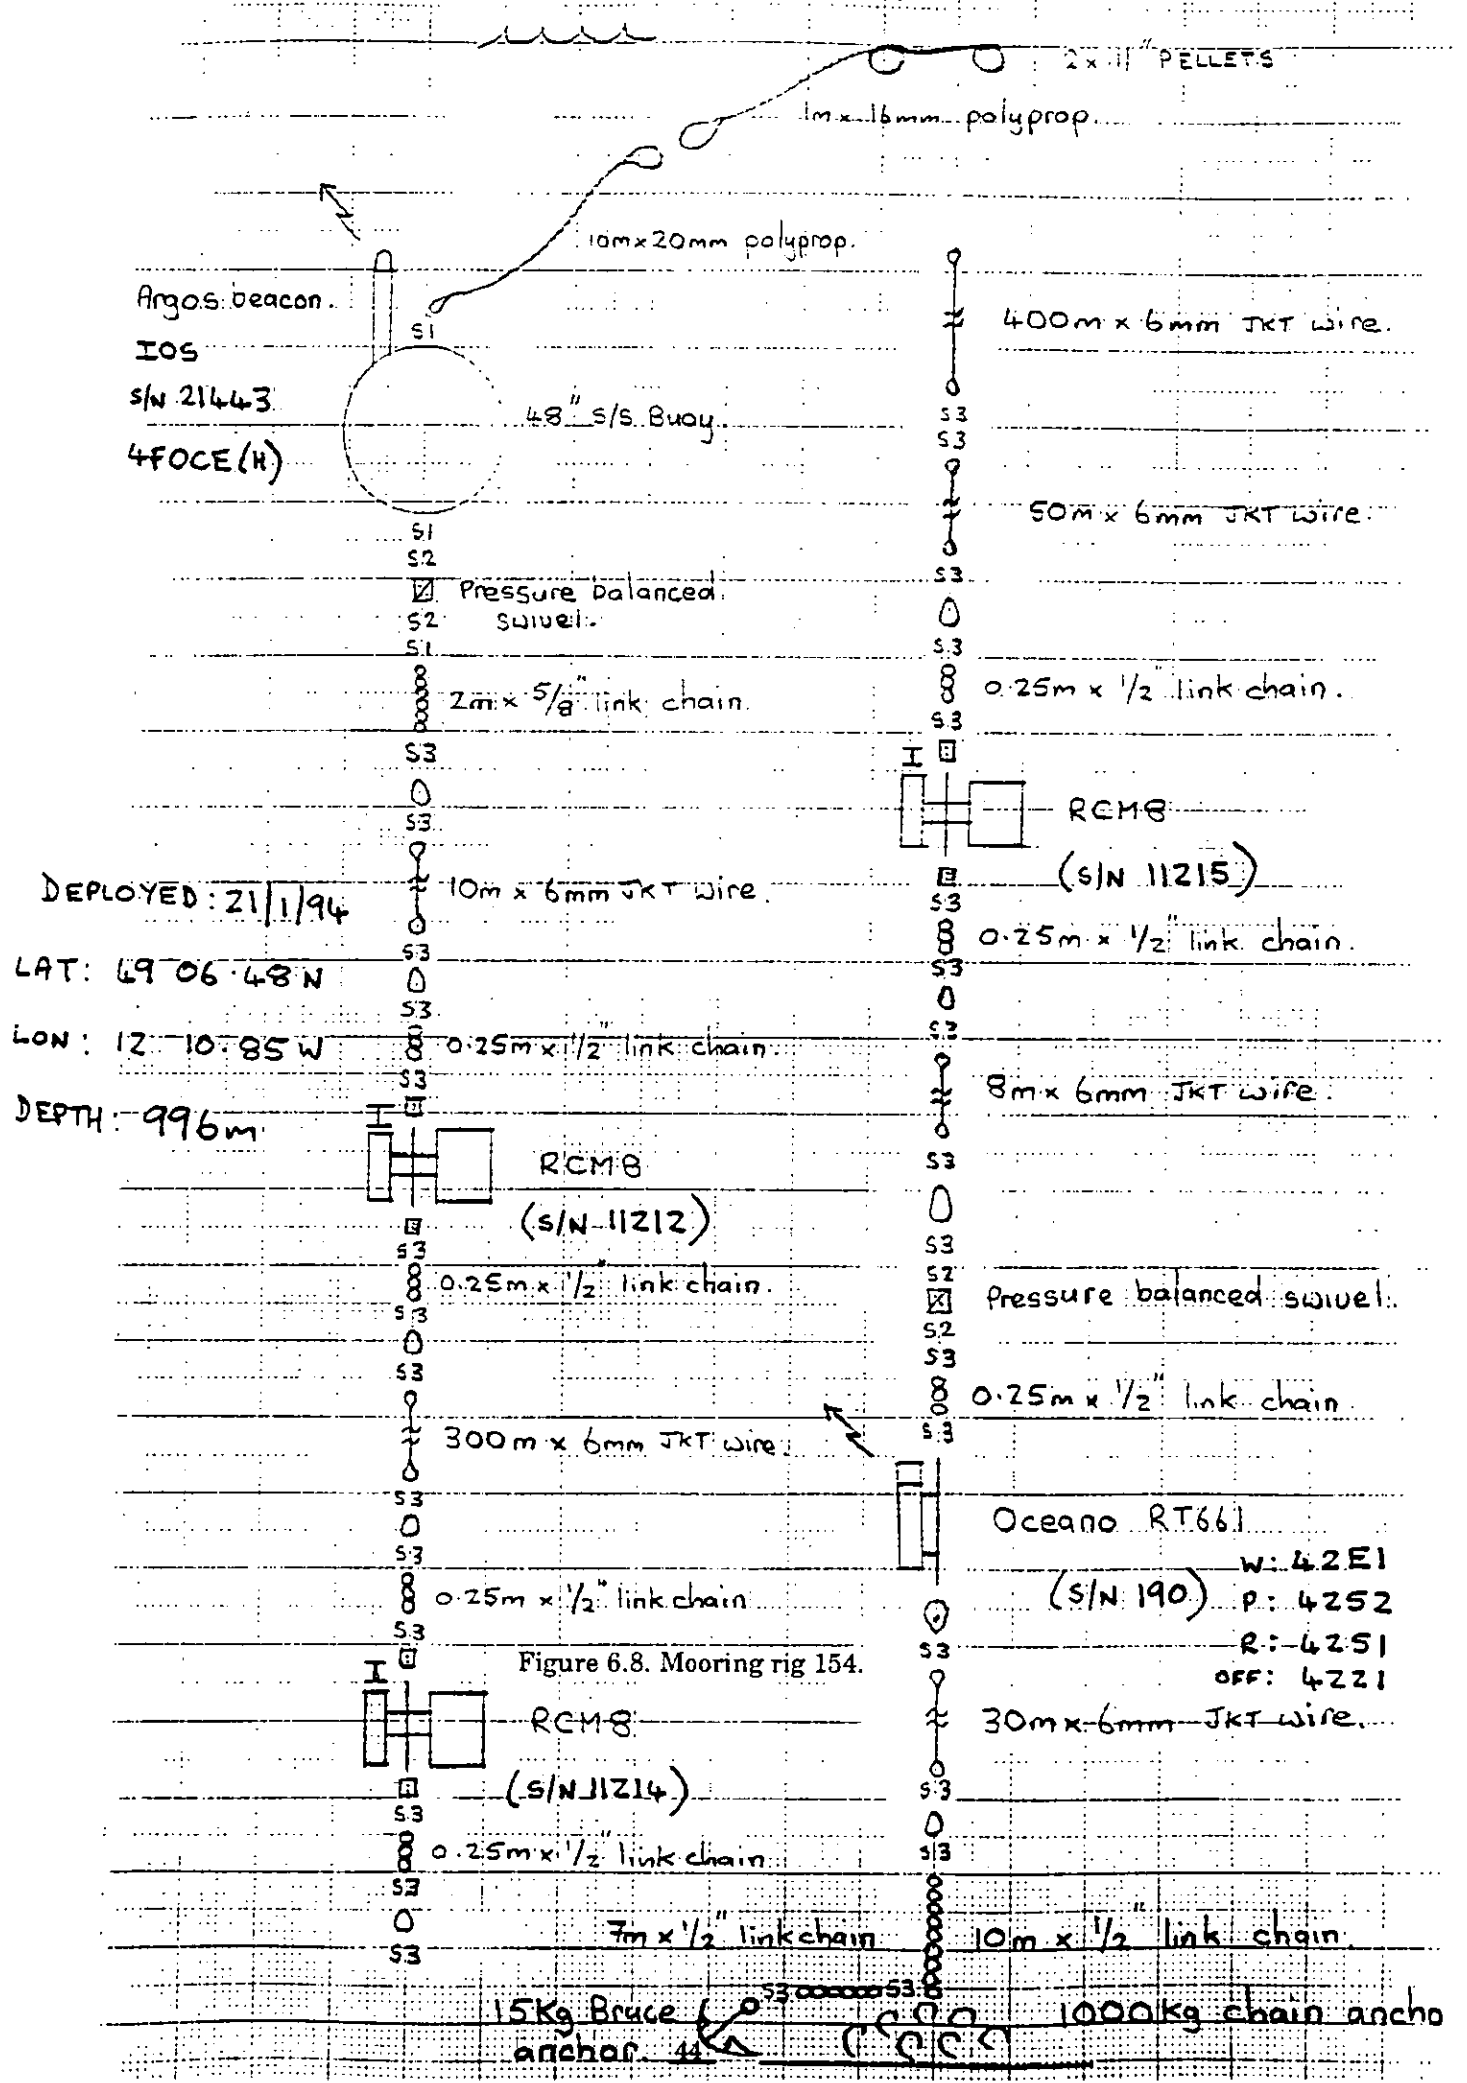 2 x 11" PELLETS
1m x 16mm polyprop.
10m x 20mm polyprop.
Argos beacon.
IOS
S/N 21443
4F0CE(H)
S1
48" S/S Buoy.
S1
S2
Pressure balanced
swivel.
S2
S1
2m x 5/8" link chain.
S3
S3
10m x 6mm JKT wire.
DEPLOYED: 21/1/94
S3
LAT: 49 06.48 N
S3
LON: 12 10.85 W
0.25m x 1/2" link chain.
S3
DEPTH: 996m
RCM8
(S/N 11212)
S3
0.25m x 1/2" link chain.
S3
S3
300m x 6mm JKT wire.
S3
S3
0.25m x 1/2" link chain
S3
Figure 6.8. Mooring rig 154.
RCM8
(S/N 11214)
S3
0.25m x 1/2" link chain
S3
S3
400m x 6mm JKT wire.
S3
S3
50m x 6mm JKT wire.
S3
S3
0.25m x 1/2" link chain.
S3
I
RCM8
(S/N 11215)
S3
0.25m x 1/2" link chain.
S3
S3
8m x 6mm JKT wire.
S3
S3
S2
Pressure balanced swivel.
S2
S3
0.25m x 1/2" link chain
S3
Oceano RT661
W: 42E1
(S/N 190) P: 4252
R: 4251
OFF: 4221
S3
30m x 6mm JKT wire.
S3
S3
7m x 1/2" link chain
10m x 1/2" link chain.
S3 S3
15Kg Bruce
anchor.
1000kg chain ancho
44